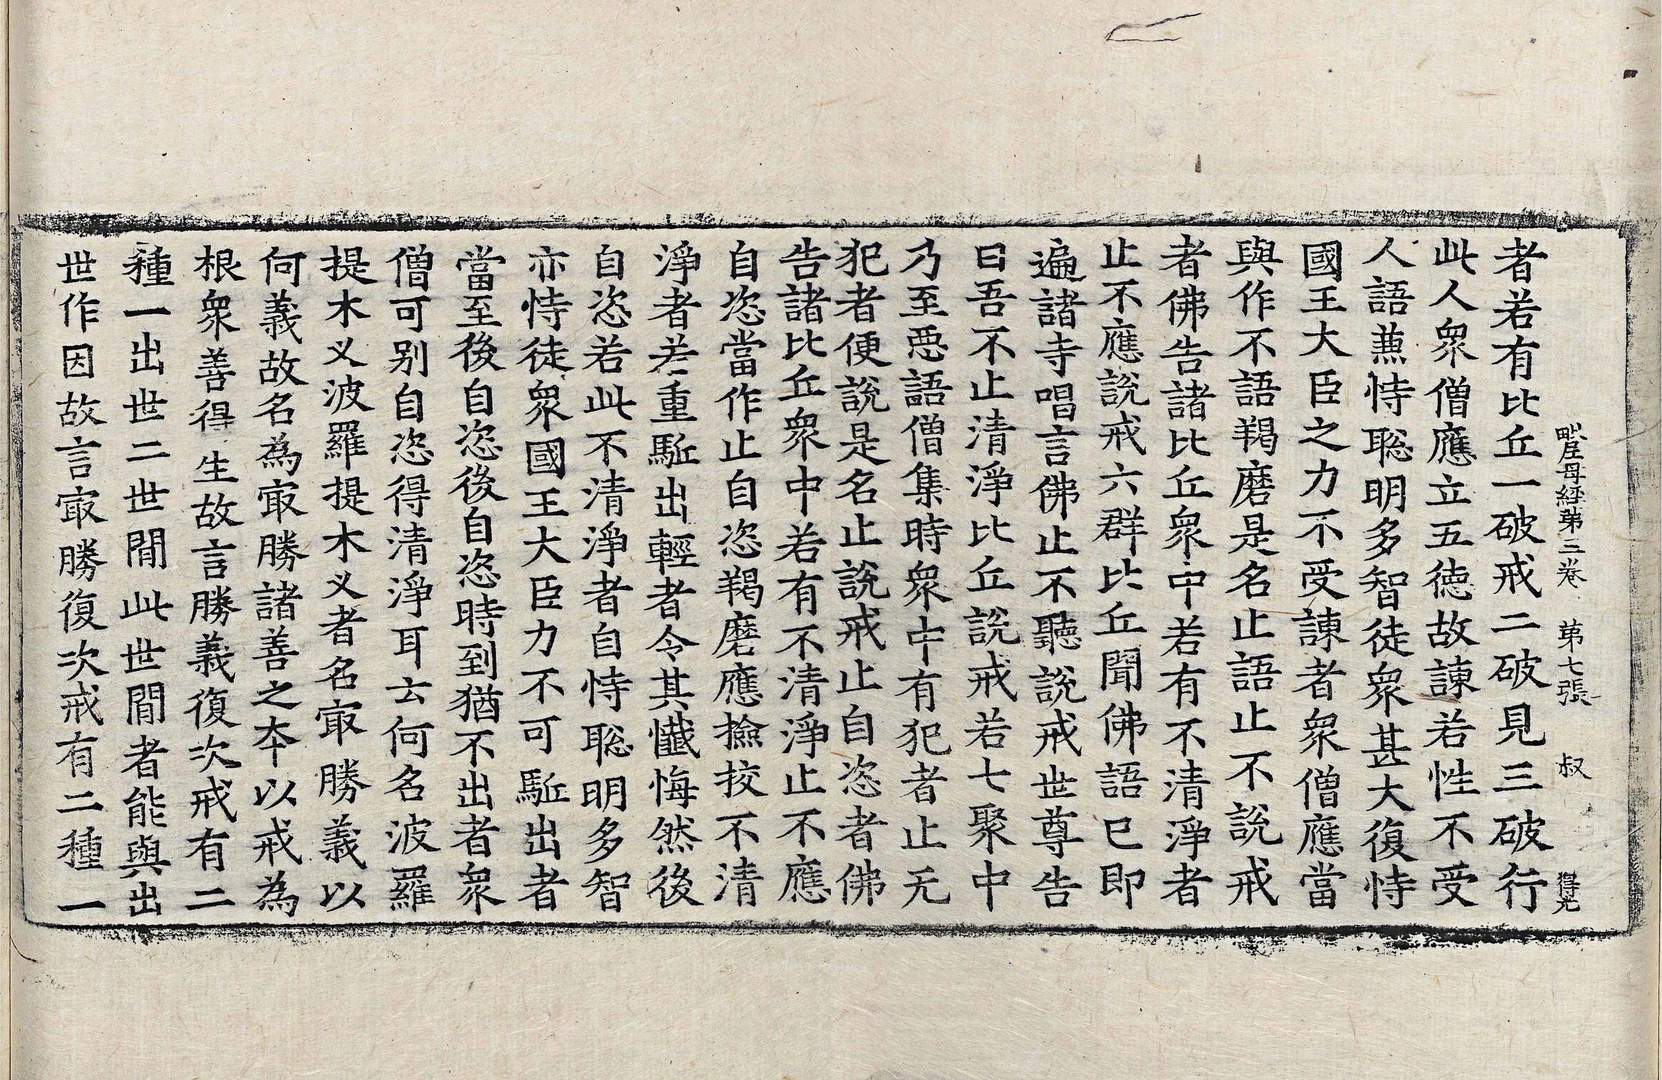 毗尼母經第二卷 第七張 叔 得光
者若有比丘一破戒二破見三破行
此人衆僧應立五德故諫若性不受
人語兼恃聡明多智徒衆甚大復恃
國王大臣之力不受諫者衆僧應當
與作不語羯磨是名止語止不說戒
者佛告諸比丘衆中若有不清淨者
止不應說戒六群比丘聞佛語已即
遍諸寺唱言佛止不聽說戒世尊告
曰吾不止清淨比丘說戒若七聚中
乃至惡語僧集時衆中有犯者止无
犯者便說是名止說戒止自恣者佛
告諸比丘衆中若有不清淨止不應
自恣當作止自恣羯磨應撿挍不清
淨者若重駈出輕者令其懺悔然後
自恣若此不清淨者自恃聡明多智
亦恃徒衆國王大臣力不可駈出者
當至後自恣後自恣時到猶不出者衆
僧可別自恣得清淨耳云何名波羅
提木叉波羅提木叉者名㝡勝義以
何義故名為㝡勝諸善之本以戒為
根衆善得生故言勝義復次戒有二
種一出世二世間此世間者能與出
世作因故言㝡勝復次戒有二種一